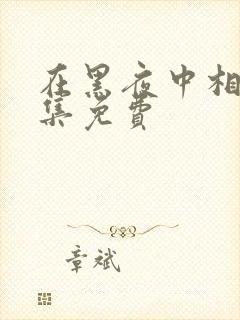 在黑夜中相
集免费
章斌